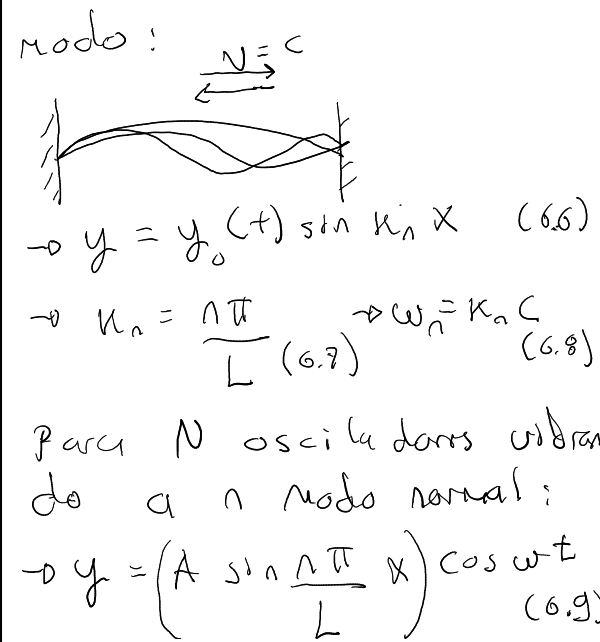 modo:
N = C
→ y = y₀(t) sin κₙ x (6.6)
→ κₙ = nπ/L (6.7) → ωₙ = κₙ C (6.8)
Para N osciladores vibran
do a n modo normal:
→ y = (A sin nπ/L x) cos ωt (6.9)